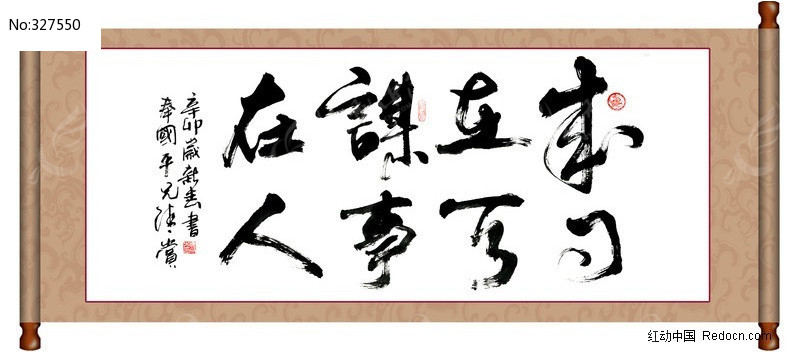 No:327550
成
在天
謀事
在人
辛卯歲新春書
奉國平兄清賞
红动中国 Redocn.com